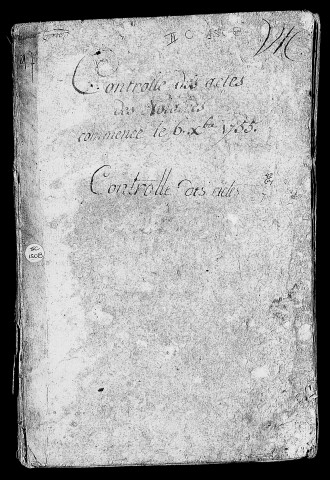 II C
Controlle des actes
des Notaires
commencé le 6. Xbre 1755.
Controlle des actes